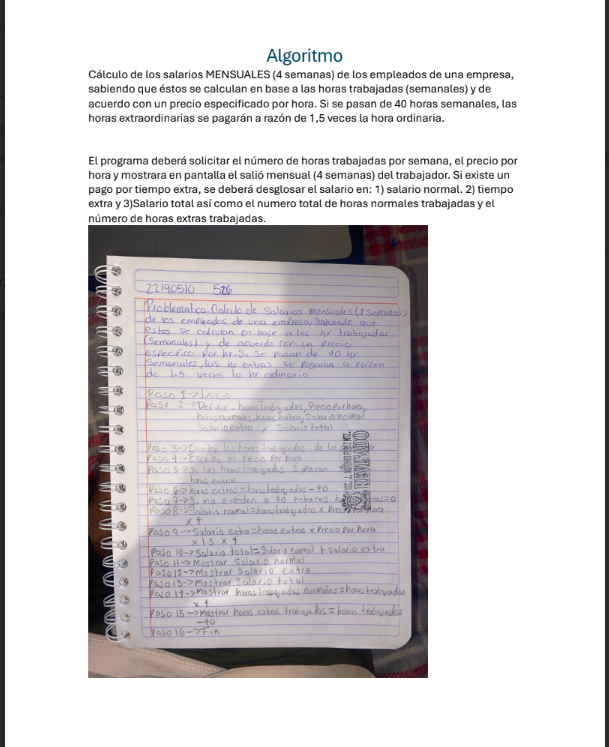 Algoritmo
Cálculo de los salarios MENSUALES (4 semanas) de los empleados de una empresa,
sabiendo que éstos se calculan en base a las horas trabajadas (semanales) y de
acuerdo con un precio especificado por hora. Si se pasan de 40 horas semanales, las
horas extraordinarias se pagarán a razón de 1,5 veces la hora ordinaria.
El programa deberá solicitar el número de horas trabajadas por semana, el precio por
hora y mostrara en pantalla el salió mensual (4 semanas) del trabajador. Si existe un
pago por tiempo extra, se deberá desglosar el salario en: 1) salario normal. 2) tiempo
extra y 3)Salario total así como el numero total de horas normales trabajadas y el
número de horas extras trabajadas.
22190510
Problematica Calculo de Salarios Mensuales (4 semanas)
de los empleados de una empresa, Sabiendo que
estos se calculan en base a las hr trabajadas
(Semanales) y de acuerdo con un precio
especifico por hr. Si se pasan de 40 hr
Semanales, las hr extras se pagaran a razon
de 1.5 veces la hr ordinaria
Paso 1->Inicio
Paso 2->Definir horas trabajadas, Precio Por hora,
horas normales, horas extra, Salario normal
Salario extra y Salario total
Paso 3->Escribe las horas trabajadas de la
Paso 4->Escribe el Precio Por hora
Paso 5->Si las horas trabajadas Superan
horas extras
Paso 6->horas extras=horas trabajadas-40
Paso 7->Si no exceden a 40 entonces =0
Paso 8->Salario normal=horas trabajadas x Precio Por hora
x 4
Paso 9->Salario extra=horas extras x Precio Por hora
x 1.5 x 4
Paso 10->Salario total=Salario normal + Salario extra
Paso 11->Mostrar Salario normal
Paso 12->Mostrar Salario extra
Paso 13->Mostrar Salario total
Paso 14->Mostrar horas trabajadas normales=horas trabajadas
x 4
Paso 15->Mostrar horas extras trabajadas=horas trabajadas
-40
Paso 16->Fin
REVISADO